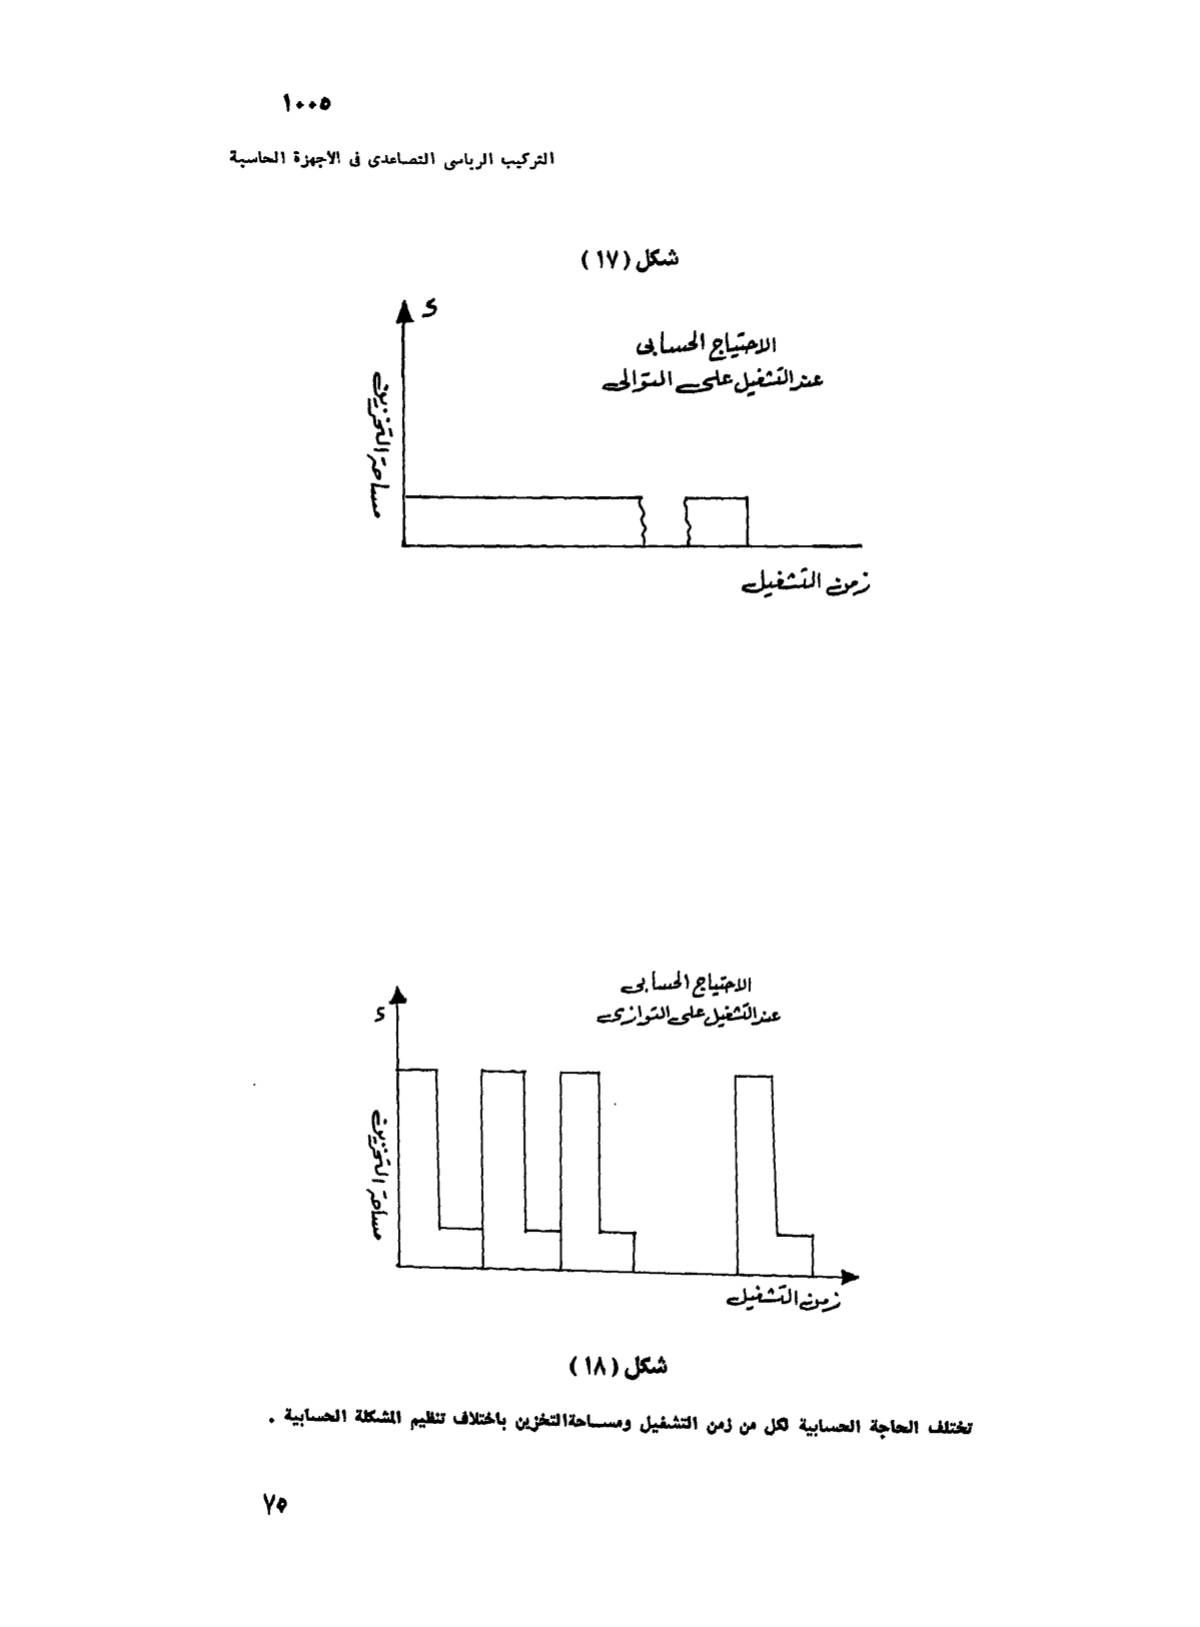 ١٠٠٥
التركيب الرياسى التصاعدى فى الأجهزة الحاسبة
شكل (١٧)
د
الاحتياج الحسابى
عند التشغيل على التوالى
مساحة التخزين
زمن التشغيل
الاحتياج الحسابى
عند التشغيل على التوازى
د
مساحة التخزين
زمن التشغيل
شكل (١٨)
تختلف الحاجة الحسابية لكل من زمن التشغيل ومساحة التخزين باختلاف تنظيم المشكلة الحسابية .
٧٥